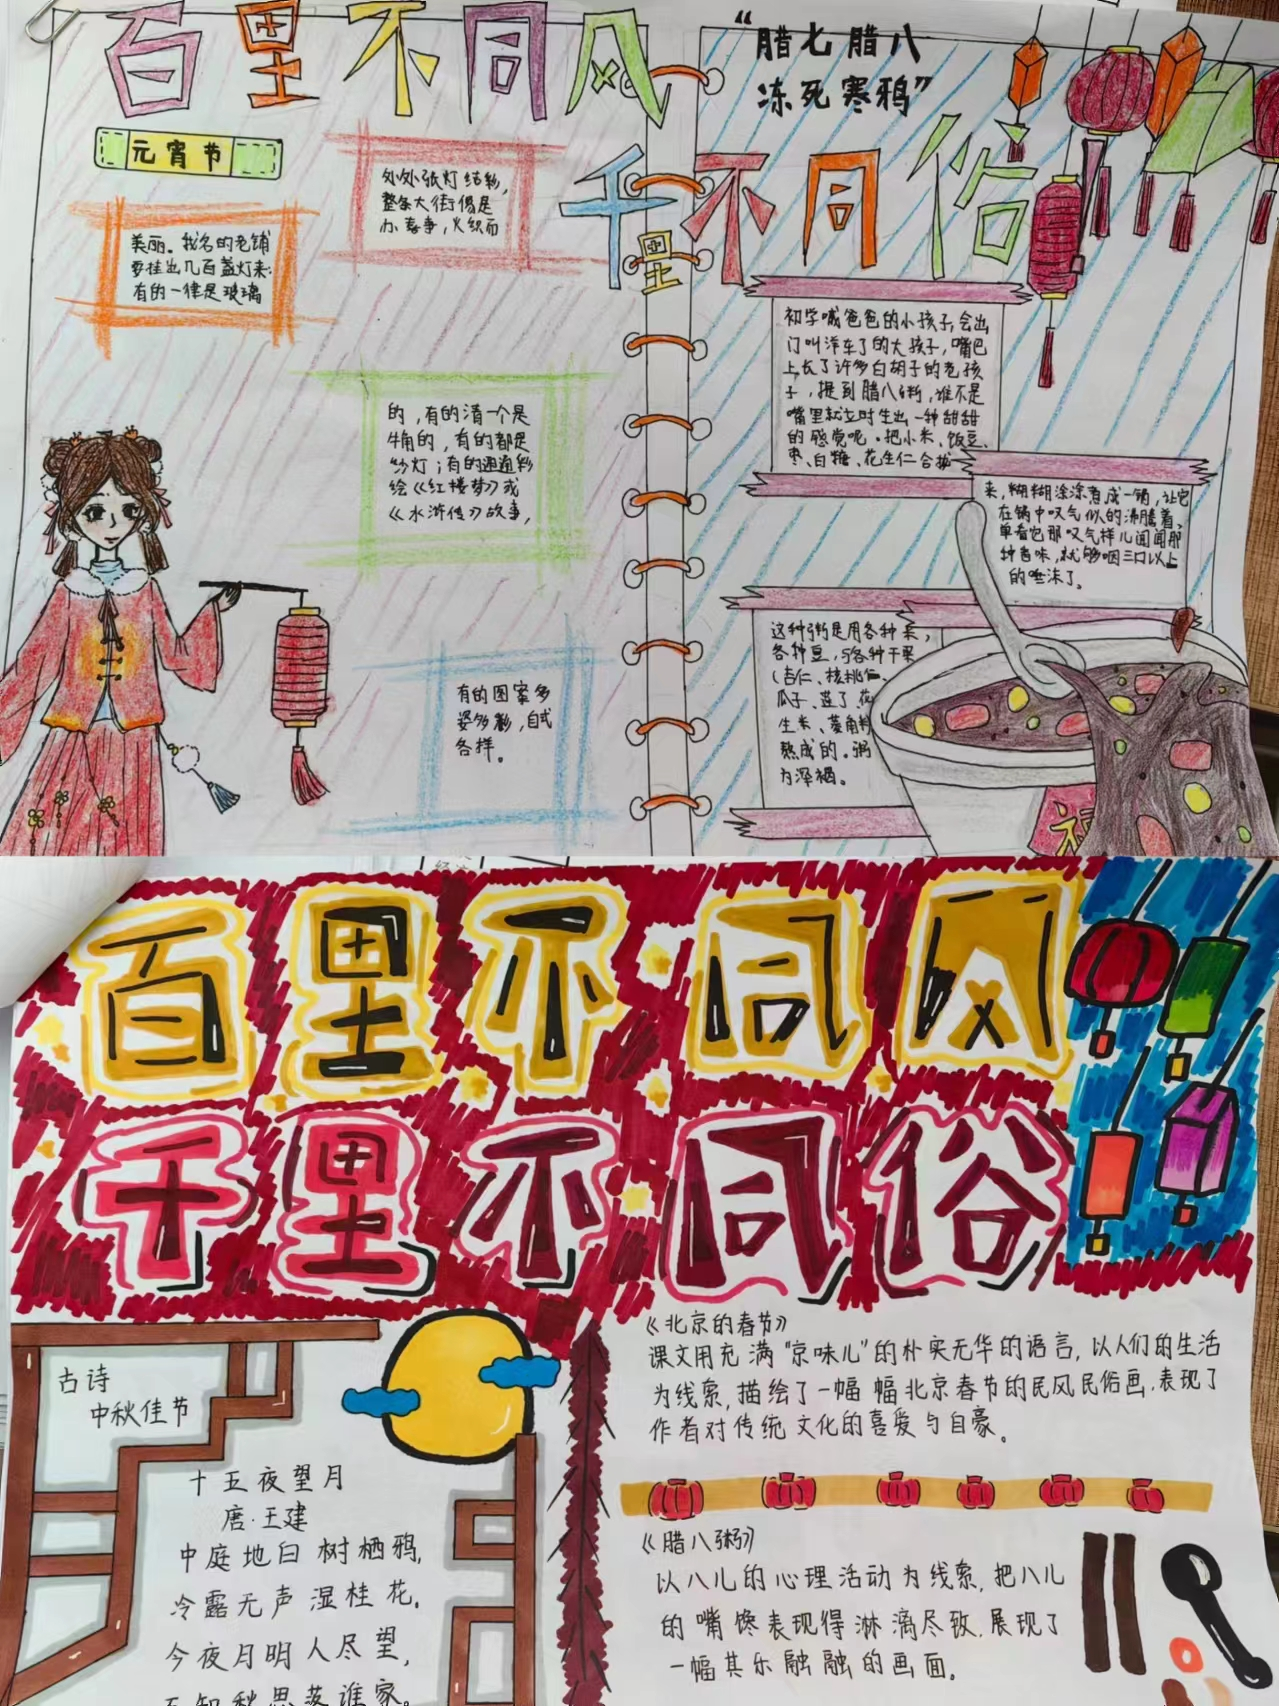 百里不同风
“腊七腊八
冻死寒鸦”
千里不同俗
元宵节
处处张灯结彩,
整条大街像是
办喜事,火炽而
美丽。有名的老铺
要挂出几百盏灯来:
有的一律是玻璃
的,有的清一个是
牛角的,有的都是
纱灯;有的通通彩
绘《红楼梦》或
《水浒传》故事,
有的图案多
姿多彩,自式
各样。
初学喊爸爸的小孩子,会出
门叫洋车了的大孩子,嘴巴
上长了许多白胡子的老孩
子,提到腊八粥,谁不是
嘴里就立时生出一种甜甜
的感觉呢。把小米、饭豆、
枣、白糖、花生仁合拢
来,糊糊涂涂煮成一锅,让它
在锅中叹气似的沸腾着,
单看它那叹气样儿闻闻那
种香味,就够咽三口以上
的唾沫了。
这种粥是用各种米,
各种豆,与各种干果
(杏仁、核桃仁、
瓜子、莲子、花
生米、菱角料
熬成的。粥
为深褐。
福
百里不同风
千里不同俗
古诗
中秋佳节
十五夜望月
唐·王建
中庭地白树栖鸦,
冷露无声湿桂花。
今夜月明人尽望,
不知秋思落谁家。
《北京的春节》
课文用充满“京味儿”的朴实无华的语言,以人们的生活
为线索,描绘了一幅幅北京春节的民风民俗画.表现了
作者对传统文化的喜爱与自豪。
《腊八粥》
以八儿的心理活动为线索,把八儿
的嘴馋表现得淋漓尽致.展现了
一幅其乐融融的画面。